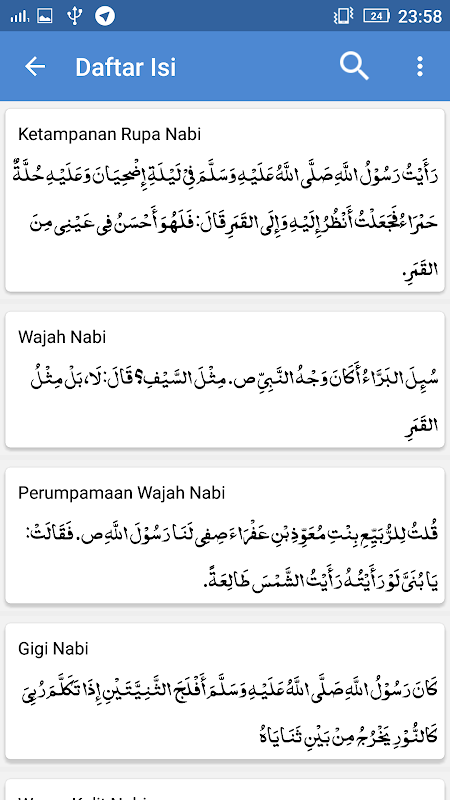 24 23:58
Daftar Isi
Ketampanan Rupa Nabi
رَأَيْتُ رَسُوْلُ اللَّهِ صَلَّى اللَّهُ عَلَيْهِ وَسَلَّمَ فِيْ لَيْلَةِ إِضْحِيَانَ وَعَلَيْهِ حُلَّةٌ
حَمْرَاءُ فَجَعَلْتُ أَنْظُرُ إِلَيْهِ وَإِلَى القَمَرِ قَالَ: فَلَهُوَ أَحْسَنُ فِى عَيْنِى مِنَ
القَمَرِ.
Wajah Nabi
سُئِلَ البَرَّاءُ أَكَانَ وَجْهُ النَّبِيِّ ص. مِثْلَ السَّيْفِ؟ قَالَ: لَا، بَلْ مِثْلُ
القَمَرِ
Perumpamaan Wajah Nabi
قُلتُ لِلرُّبَيِّعِ بِنْتِ مُعَوِّذِ بْنِ عَفْرَاءَ صِفِى لَنَا رَسُوْلَ اللَّهِ ص. فَقَالَتْ:
يَا بُنَىَّ لَوْ رَأَيْتُهُ رَأَيْتُ الشَّمْسَ طَالِعَةً.
Gigi Nabi
كَانَ رَسُوْلُ اللَّهِ صَلَّى اللَّهُ عَلَيْهِ وَسَلَّمَ أَفْلَجَ الثَّنِيَّتَيْنِ إِذَا تَكَلَّمَ رُبِيَ
كَالنُّوْرِ يَخْرُجُ مِنْ بَيْنِ ثَنَايَاهُ